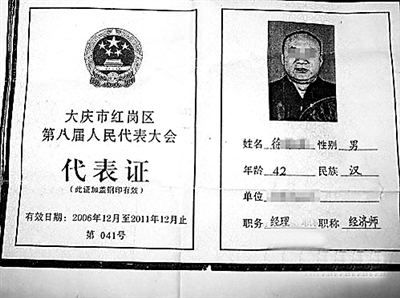 大庆市红岗区
第八届人民代表大会
代表证
(此证加盖钢印有效)
有效日期：2006年12月至2011年12月止
第 041号
姓名 徐 性别 男
年龄 42 民族 汉
单位
职务 经理 职称 经济师